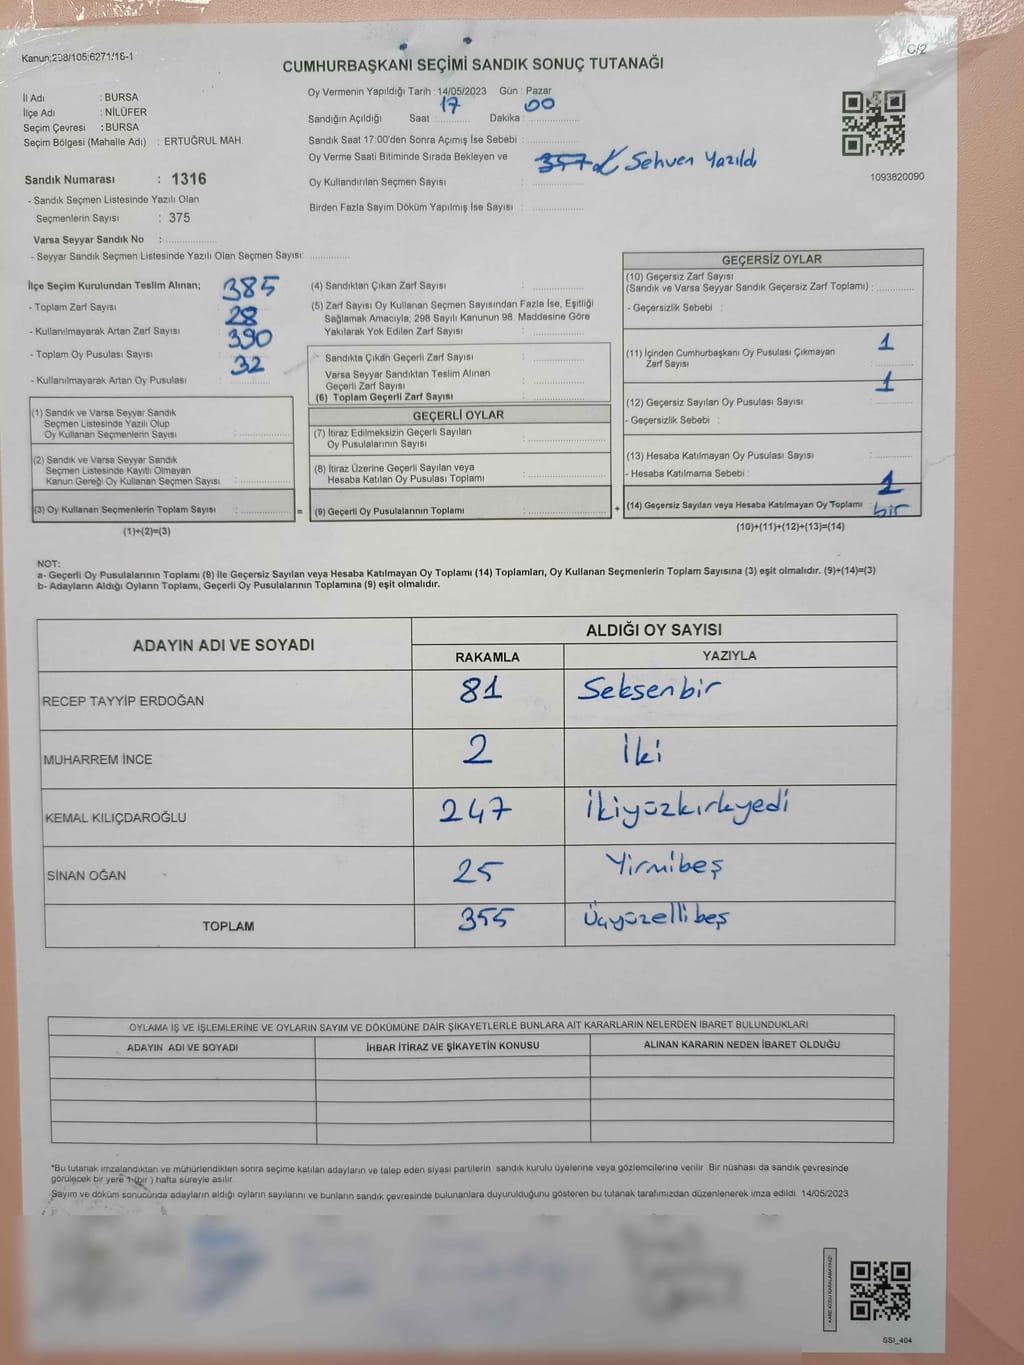 Kanun;298/105;6271/16-1
C/2
CUMHURBAŞKANI SEÇİMİ SANDIK SONUÇ TUTANAĞI
İl Adı : BURSA
İlçe Adı : NİLÜFER
Seçim Çevresi : BURSA
Seçim Bölgesi (Mahalle Adı) : ERTUĞRUL MAH.
Oy Vermenin Yapıldığı Tarih : 14/05/2023 Gün : Pazar
Sandığın Açıldığı Saat : 17 Dakika : 00
Sandık Saat 17:00'den Sonra Açımış İse Sebebi :
Oy Verme Saati Bitiminde Sırada Bekleyen ve
Oy Kullandırılan Seçmen Sayısı :
357 Sehven Yazıldı
Birden Fazla Sayım Döküm Yapılmış İse Sayısı :
1093820090
Sandık Numarası : 1316
- Sandık Seçmen Listesinde Yazılı Olan
Seçmenlerin Sayısı : 375
Varsa Seyyar Sandık No :
- Seyyar Sandık Seçmen Listesinde Yazılı Olan Seçmen Sayısı:
İlçe Seçim Kurulundan Teslim Alınan;
- Toplam Zarf Sayısı : 385
- Kullanılmayarak Artan Zarf Sayısı : 28
- Toplam Oy Pusulası Sayısı : 390
- Kullanılmayarak Artan Oy Pusulası : 32
(1) Sandık ve Varsa Seyyar Sandık
Seçmen Listesinde Yazılı Olup
Oy Kullanan Seçmenlerin Sayısı :
(2) Sandık ve Varsa Seyyar Sandık
Seçmen Listesinde Kayıtlı Olmayan
Kanun Gereği Oy Kullanan Seçmen Sayısı :
(3) Oy Kullanan Seçmenlerin Toplam Sayısı :
(1)+(2)=(3)
(4) Sandıktan Çıkan Zarf Sayısı :
(5) Zarf Sayısı Oy Kullanan Seçmen Sayısından Fazla İse, Eşitliği
Sağlamak Amacıyla, 298 Sayılı Kanunun 98. Maddesine Göre
Yakılarak Yok Edilen Zarf Sayısı :
Sandıkta Çıkan Geçerli Zarf Sayısı :
Varsa Seyyar Sandıktan Teslim Alınan
Geçerli Zarf Sayısı :
(6) Toplam Geçerli Zarf Sayısı :
GEÇERLİ OYLAR
(7) İtiraz Edilmeksizin Geçerli Sayılan
Oy Pusulalarının Sayısı :
(8) İtiraz Üzerine Geçerli Sayılan veya
Hesaba Katılan Oy Pusulası Toplamı :
= (9) Geçerli Oy Pusulalarının Toplamı :
GEÇERSİZ OYLAR
(10) Geçersiz Zarf Sayısı
(Sandık ve Varsa Seyyar Sandık Geçersiz Zarf Toplamı) :
- Geçersizlik Sebebi :
(11) İçinden Cumhurbaşkanı Oy Pusulası Çıkmayan
Zarf Sayısı : 1
(12) Geçersiz Sayılan Oy Pusulası Sayısı : 1
- Geçersizlik Sebebi :
(13) Hesaba Katılmayan Oy Pusulası Sayısı :
- Hesaba Katılmama Sebebi :
+ (14) Geçersiz Sayılan veya Hesaba Katılmayan Oy Toplamı 1 bir
(10)+(11)+(12)+(13)=(14)
NOT:
a- Geçerli Oy Pusulalarının Toplamı (9) ile Geçersiz Sayılan veya Hesaba Katılmayan Oy Toplamı (14) Toplamları, Oy Kullanan Seçmenlerin Toplam Sayısına (3) eşit olmalıdır. (9)+(14)=(3)
b- Adayların Aldığı Oyların Toplamı, Geçerli Oy Pusulalarının Toplamına (9) eşit olmalıdır.
ADAYIN ADI VE SOYADI ALDIĞI OY SAYISI
RAKAMLA YAZIYLA
RECEP TAYYİP ERDOĞAN 81 Seksenbir
MUHARREM İNCE 2 İki
KEMAL KILIÇDAROĞLU 247 İkiyüzkırkyedi
SİNAN OĞAN 25 Yirmibeş
TOPLAM 355 Üçyüzellibeş
OYLAMA İŞ VE İŞLEMLERİNE VE OYLARIN SAYIM VE DÖKÜMÜNE DAİR ŞİKAYETLERLE BUNLARA AİT KARARLARIN NELERDEN İBARET BULUNDUKLARI
ADAYIN ADI VE SOYADI İHBAR İTİRAZ VE ŞİKAYETİN KONUSU ALINAN KARARIN NEDEN İBARET OLDUĞU
*Bu tutanak imzalandıktan ve mühürlendikten sonra seçime katılan adayların ve talep eden siyasi partilerin sandık kurulu üyelerine veya gözlemcilerine verilir. Bir nüshası da sandık çevresinde
görülecek bir yere 1 (bir) hafta süreyle asılır.
Sayım ve döküm sonucunda adayların aldığı oyların sayılarını ve bunların sandık çevresinde bulunanlara duyurulduğunu gösteren bu tutanak tarafımızdan düzenlenerek imza edildi. 14/05/2023
KARE KODU KARALAMAYINIZ!
SSI_404